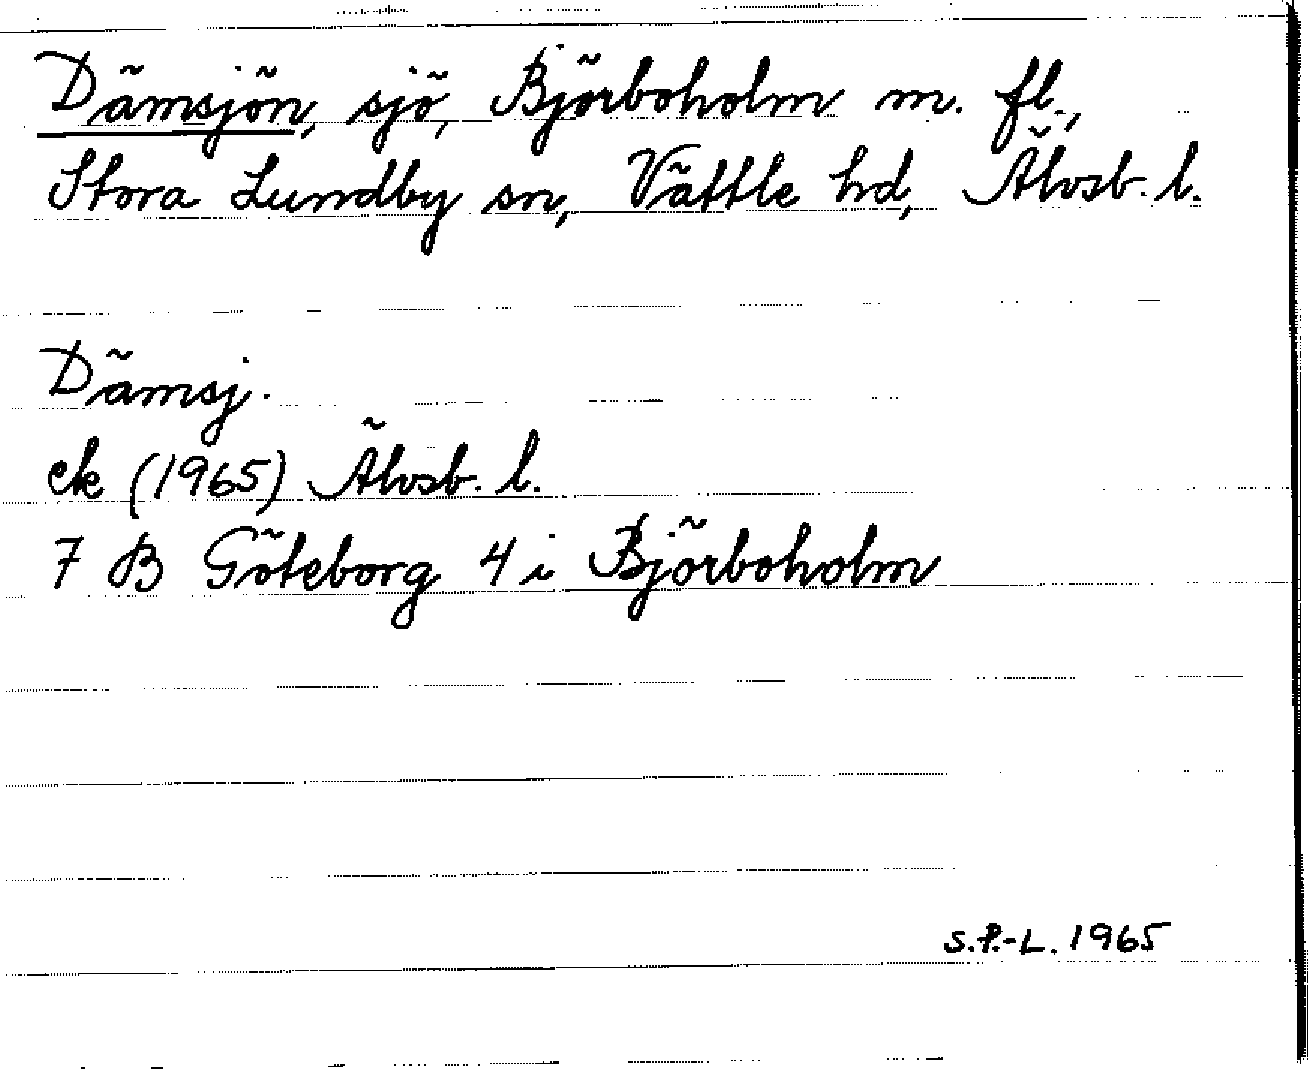 Dämsjön, sjö, Björboholm m. fl.,
Stora Lundby sn, Vättle hd, Älvsb. l.
Dämsj.
ek (1965) Älvsb. l.
7 B Göteborg 4 i Björboholm
S.P.-L. 1965